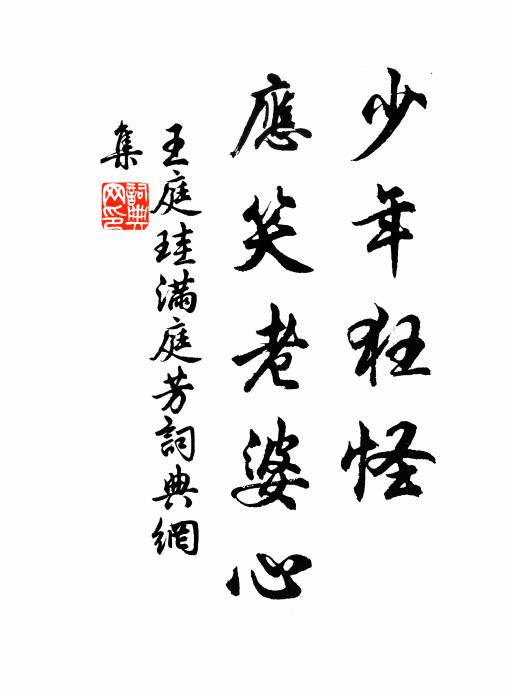 少年狂怪
應笑老婆心
王庭珪滿庭芳詞典網
集
詞典網印